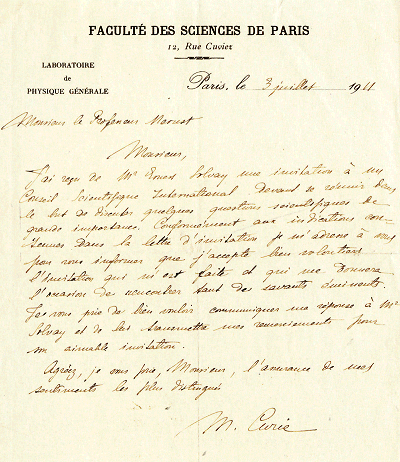 FACULTÉ DES SCIENCES DE PARIS
12, Rue Cuvier
LABORATOIRE
de
PHYSIQUE GÉNÉRALE
Paris, le 3 juillet 1911
Monsieur le Professeur Nernst
Monsieur,
J'ai reçu de Mr Ernest Solvay une invitation à un
Conseil Scientifique International devant se réunir dans
le but de discuter quelques questions scientifiques de
grande importance. Conformément aux indications con-
tenues dans la lettre d'invitation je m'adresse à vous
pour vous informer que j'accepte bien volontiers
l'invitation qui m'est faite et qui me donnera
l'occasion de rencontrer tant de savants éminents.
Je vous prie de bien vouloir communiquer ma réponse à Mr
Solvay et de lui transmettre mes remerciements pour
son aimable invitation.
Agréez, je vous prie, Monsieur, l'assurance de mes
sentiments les plus distingués
M. Curie